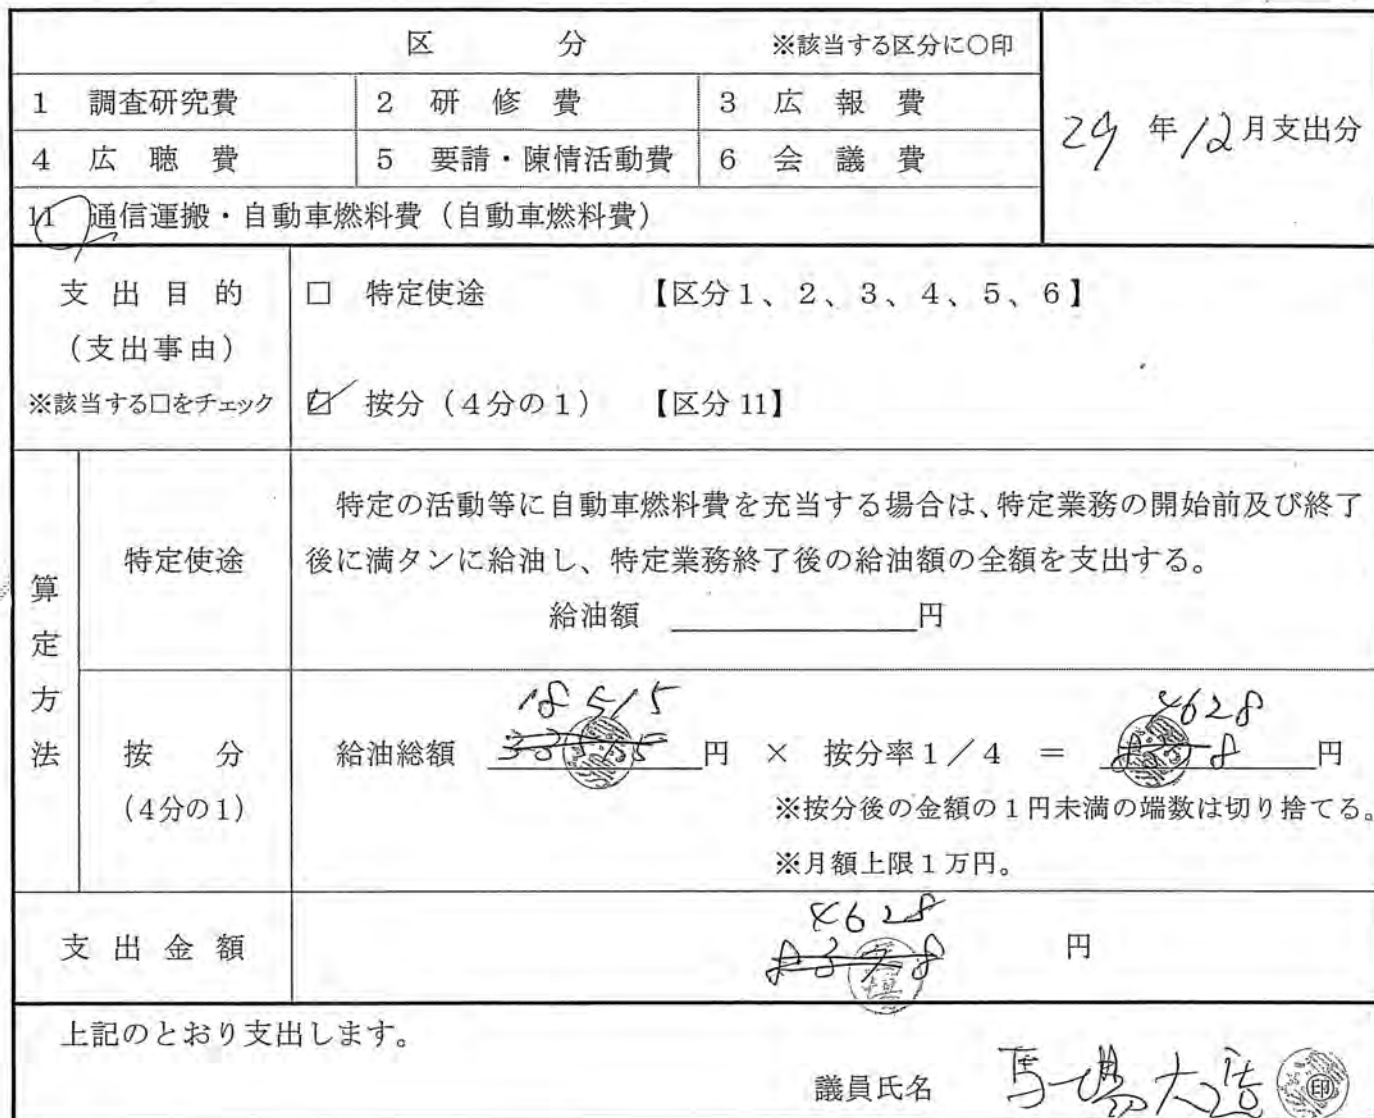 区 分 ※該当する区分に○印
1 調査研究費 2 研修費 3 広報費
29年12月支出分
4 広聴費 5 要請・陳情活動費 6 会議費
11 通信運搬・自動車燃料費(自動車燃料費)
支出目的
(支出事由)
※該当する□をチェック
□ 特定使途 【区分1、2、3、4、5、6】
☑ 按分(4分の1) 【区分11】
算定方法
特定使途
特定の活動等に自動車燃料費を充当する場合は、特定業務の開始前及び終了
後に満タンに給油し、特定業務終了後の給油額の全額を支出する。
給油額 円
按分
(4分の1)
18515 4628
給油総額 円 × 按分率1/4 = 円
※按分後の金額の1円未満の端数は切り捨てる。
※月額上限1万円。
4628
支出金額 円
上記のとおり支出します。
議員氏名 馬場大造 印